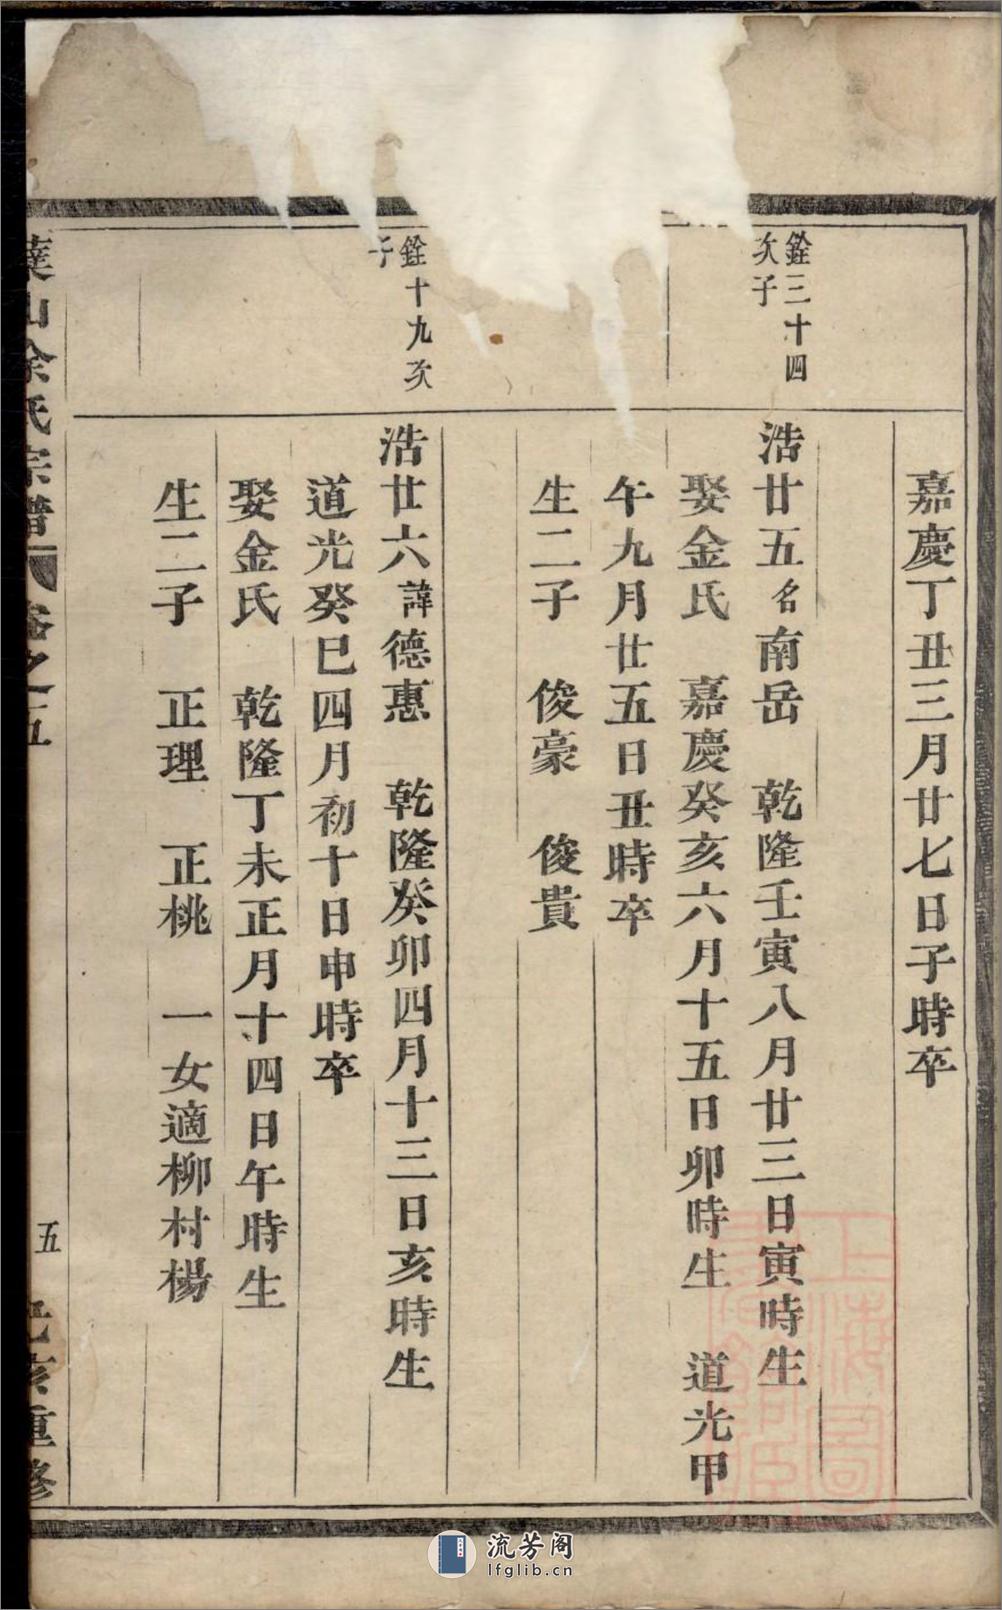 嘉慶丁丑三月廿七日子時卒
銓三十四
次子
浩廿五名南岳 乾隆壬寅八月廿三日寅時生
娶金氏 嘉慶癸亥六月十五日卯時生 道光甲
午九月廿五日丑時卒
生二子 俊豪 俊貴
銓十九次
子
浩廿六諱德惠 乾隆癸卯四月十三日亥時生
道光癸巳四月初十日申時卒
娶金氏 乾隆丁未正月十四日午時生
生二子 正理 正桃 一女適柳村楊
山余氏宗譜 卷之五 五 己亥重修
流芳阁
lfglib.cn